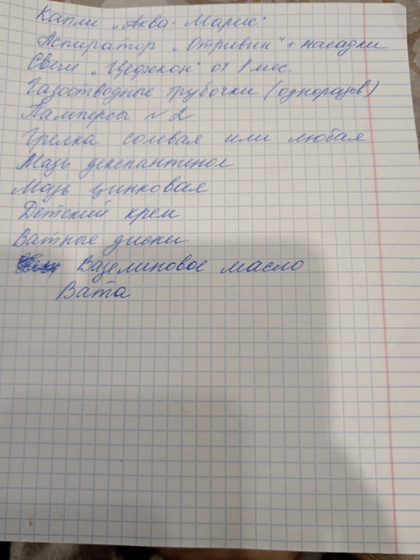 Капли „Аква-Марис"
Аспиратор „Отривин" + насадки
Свечи „Цефекон" от 1 мес.
Газоотводные трубочки (одноразов)
Памперсы № 2
Грелка солевая или любая
Мазь декспантенол
Мазь цинковая
Детский крем
Ватные диски
Вазелиновое масло
Вата